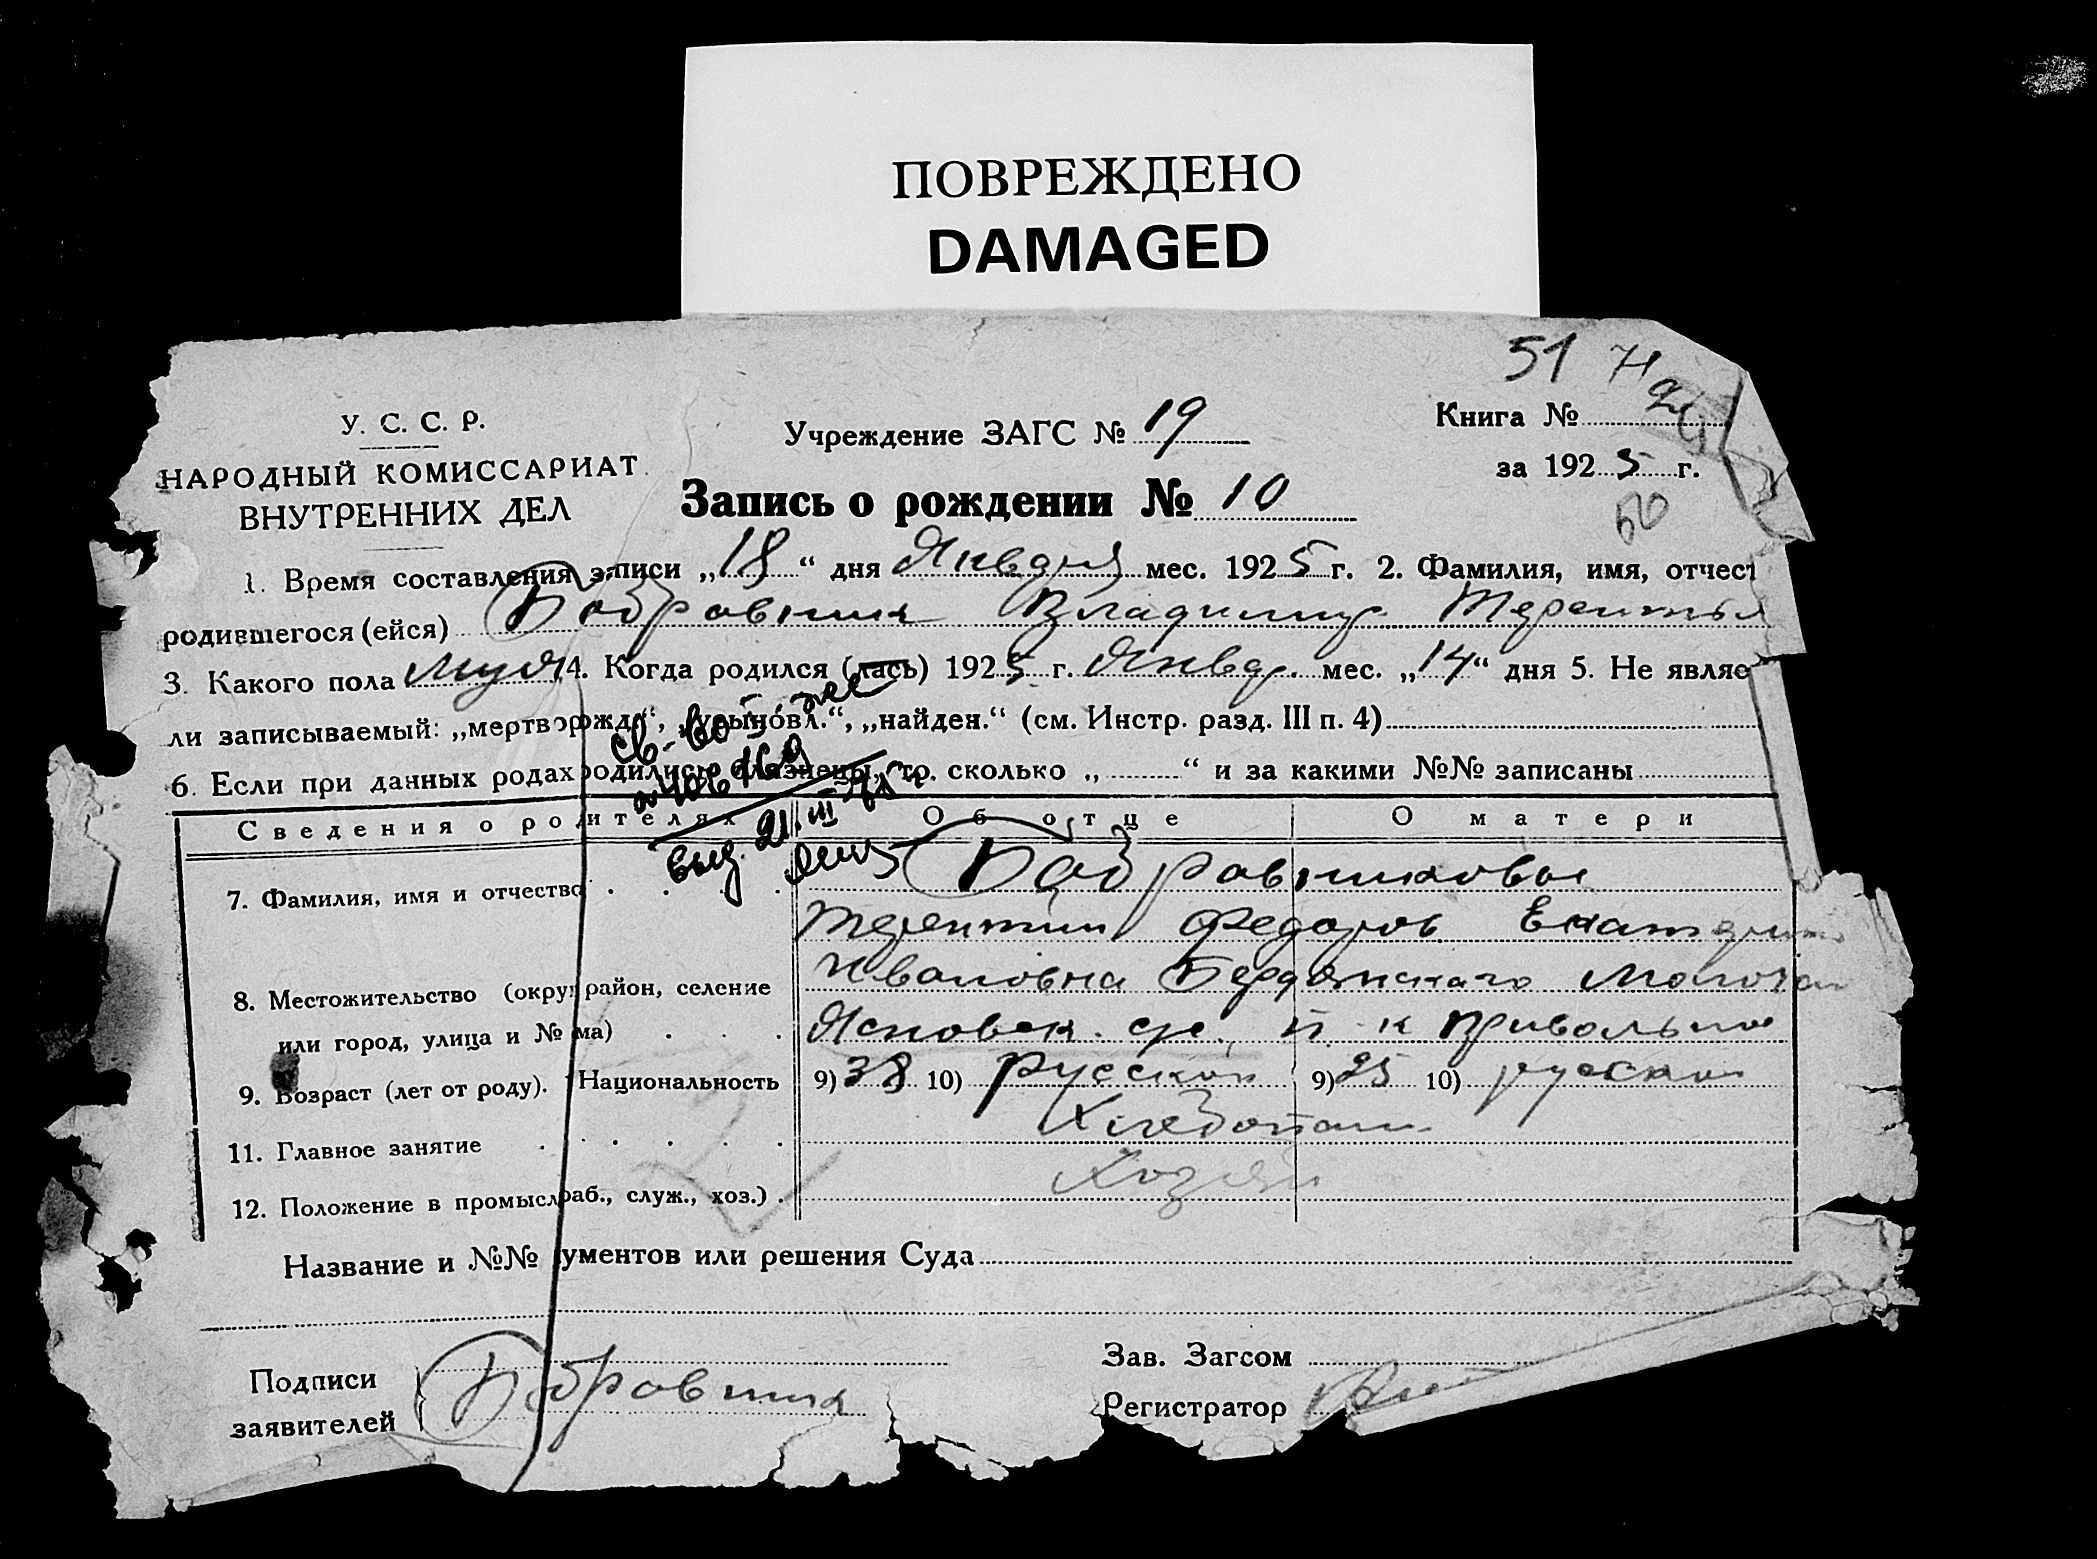 ПОВРЕЖДЕНО
DAMAGED
51
У. С. С. Р.
НАРОДНЫЙ КОМИССАРИАТ
ВНУТРЕННИХ ДЕЛ
Учреждение ЗАГС № 19
Книга №
за 1925 г.
Запись о рождении № 10
60
1. Время составления записи „18“ дня Января мес. 1925 г. 2. Фамилия, имя, отчест
родившегося (ейся) Бобровник Владимир Терентьи
3. Какого пола муж 4. Когда родился (лась) 1925 г. Январ. мес. „14“ дня 5. Не являе
ли записываемый: „мертворожд“, „усыновл.“, „найден.“ (см. Инстр. разд. III п. 4)
6. Если при данных родах родились близнецы, то сколько „ “ и за какими №№ записаны
св-во
выд. 21 III
Сведения о родителях Об отце О матери
7. Фамилия, имя и отчество Бобровниковы
Терентий Федоров Екатерина
Ивановна Бердянского Молочан
8. Местожительство (окру район, селение
или город, улица и № ма)
п. к Привольное
9. Возраст (лет от роду). Национальность 9) 38 10) Русской 9) 25 10) русской
11. Главное занятие Хлебопаш
12. Положение в промысл раб., служ., хоз.) Хозяи
Название и №№ ументов или решения Суда
Подписи
заявителей Бобровник
Зав. Загсом
Регистратор